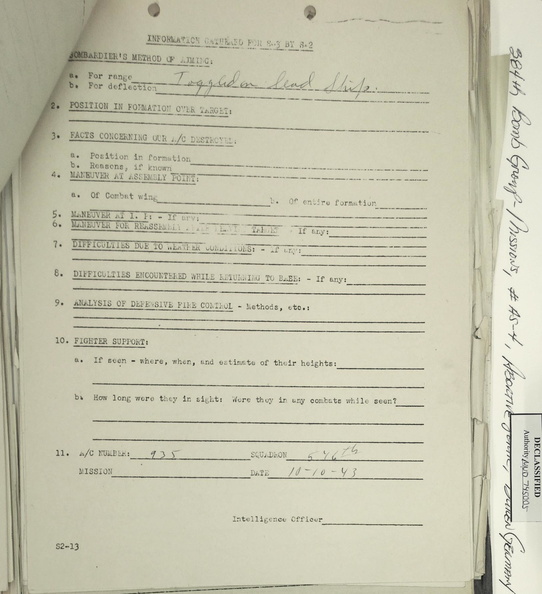 INFORMATION GATHERED FOR S-3 BY S-2
BOMBARDIER'S METHOD OF AIMING:
a. For range Toggled on lead Ship.
b. For deflection
2. POSITION IN FORMATION OVER TARGET:
3. FACTS CONCERNING OUR A/C DESTROYED:
a. Position in formation
b. Reasons, if known
4. MANEUVER AT ASSEMBLY POINT:
a. Of Combat wing b. Of entire formation
5. MANEUVER AT I. P: - If any:
6. MANEUVER FOR REASSEMBLY TARGET - If any:
7. DIFFICULTIES DUE TO WEATHER CONDITIONS: - If any:
8. DIFFICULTIES ENCOUNTERED WHILE RETURNING TO BASE: - If any:
9. ANALYSIS OF DEFENSIVE FIRE CONTROL - Methods, etc.:
10. FIGHTER SUPPORT:
a. If seen - where, when, and estimate of their heights:
b. How long were they in sight: Were they in any combats while seen?
11. A/C NUMBER: 935 SQUADRON 546th
MISSION DATE 10-10-43
Intelligence Officer
S2-13
384th Bomb Group - Missions, # AS-4, Germany
DECLASSIFIED
Authority NND 745005